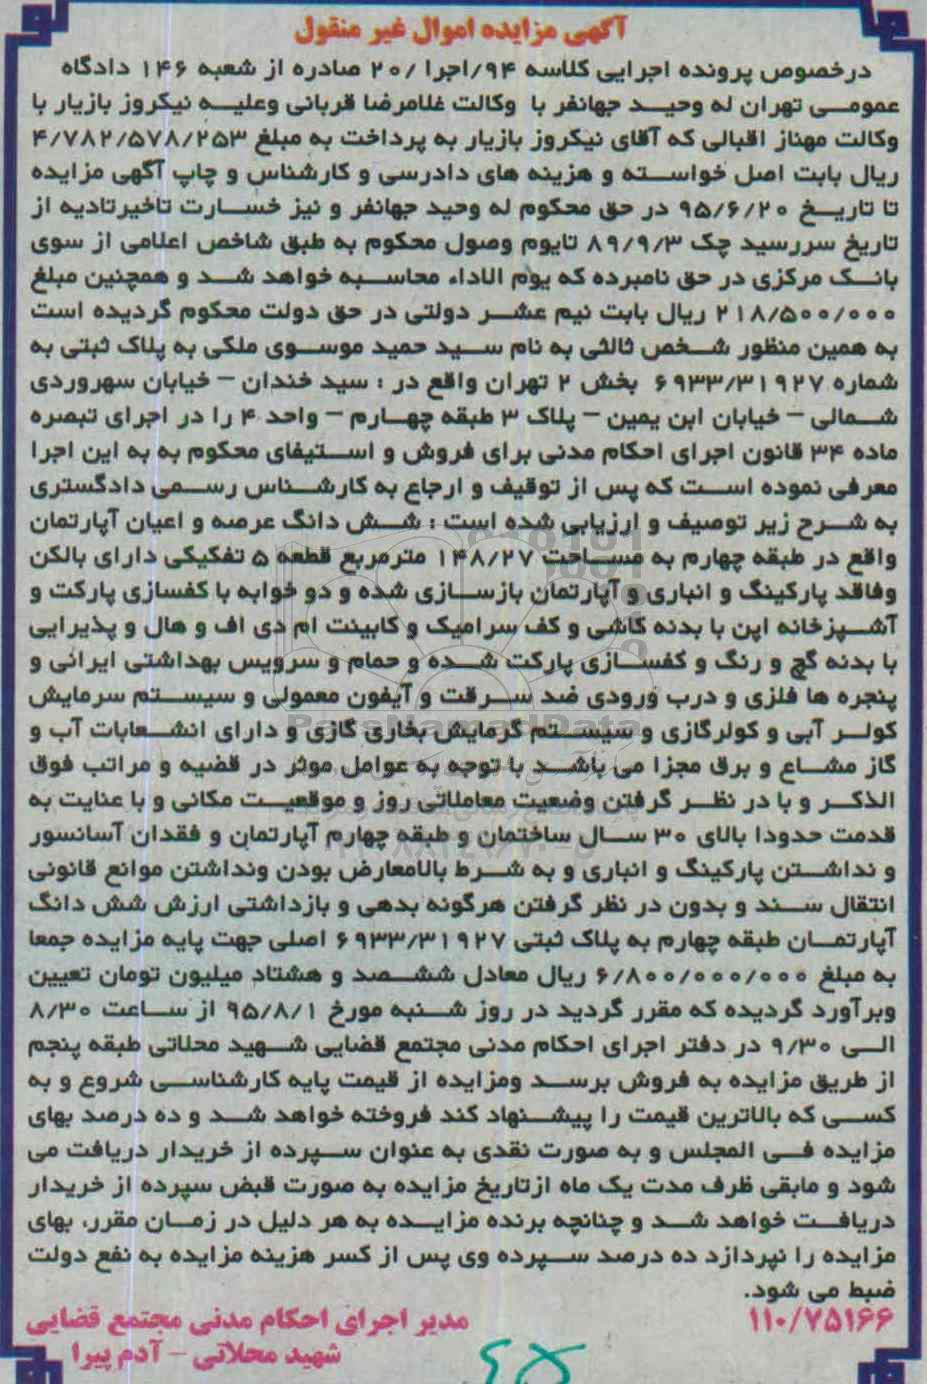 آگهی مزایده اموال غیر منقول
درخصوص پرونده اجرایی کلاسه ۹۴/اجرا /۲۰ صادره از شعبه ۱۴۶ دادگاه
عمومی تهران له وحید جهانفر با وکالت غلامرضا قربانی وعلیه نیکروز بازیار با
وکالت مهناز اقبالی که آقای نیکروز بازیار به پرداخت به مبلغ ۴/۷۸۲/۵۷۸/۲۵۳
ریال بابت اصل خواسته و هزینه های دادرسی و کارشناس و چاپ آگهی مزایده
تا تاریخ ۹۵/۶/۲۰ در حق محکوم له وحید جهانفر و نیز خسارت تاخیرتادیه از
تاریخ سررسید چک ۸۹/۹/۳ تایوم وصول محکوم به طبق شاخص اعلامی از سوی
بانک مرکزی در حق نامبرده که یوم الاداء محاسبه خواهد شد و همچنین مبلغ
۲۱۸/۵۰۰/۰۰۰ ریال بابت نیم عشر دولتی در حق دولت محکوم گردیده است
به همین منظور شخص ثالثی به نام سید حمید موسوی ملکی به پلاک ثبتی به
شماره ۶۹۳۳/۳۱۹۲۷ بخش ۲ تهران واقع در : سید خندان – خیابان سهروردی
شمالی – خیابان ابن یمین – پلاک ۳ طبقه چهارم – واحد ۴ را در اجرای تبصره
ماده ۳۴ قانون اجرای احکام مدنی برای فروش و استیفای محکوم به به این اجرا
معرفی نموده است که پس از توقیف و ارجاع به کارشناس رسمی دادگستری
به شرح زیر توصیف و ارزیابی شده است : شش دانگ عرصه و اعیان آپارتمان
واقع در طبقه چهارم به مساحت ۱۴۸/۲۷ مترمربع قطعه ۵ تفکیکی دارای بالکن
وفاقد پارکینگ و انباری و آپارتمان بازسازی شده و دو خوابه با کفسازی پارکت و
آشپزخانه اپن با بدنه کاشی و کف سرامیک و کابینت ام دی اف و هال و پذیرایی
با بدنه گچ و رنگ و کفسازی پارکت شده و حمام و سرویس بهداشتی ایرانی و
پنجره ها فلزی و درب ورودی ضد سرقت و آیفون معمولی و سیستم سرمایش
کولر آبی و کولرگازی و سیستم گرمایش بخاری گازی و دارای انشعابات آب و
گاز مشاع و برق مجزا می باشد با توجه به عوامل موثر در قضیه و مراتب فوق
الذکر و با در نظر گرفتن وضعیت معاملاتی روز و موقعیت مکانی و با عنایت به
قدمت حدودا بالای ۳۰ سال ساختمان و طبقه چهارم آپارتمان و فقدان آسانسور
و نداشتن پارکینگ و انباری و به شرط بالامعارض بودن ونداشتن موانع قانونی
انتقال سند و بدون در نظر گرفتن هرگونه بدهی و بازداشتی ارزش شش دانگ
آپارتمان طبقه چهارم به پلاک ثبتی ۶۹۳۳/۳۱۹۲۷ اصلی جهت پایه مزایده جمعا
به مبلغ ۶/۸۰۰/۰۰۰/۰۰۰ ریال معادل ششصد و هشتاد میلیون تومان تعیین
وبرآورد گردیده که مقرر گردید در روز شنبه مورخ ۹۵/۸/۱ از ساعت ۸/۳۰
الی ۹/۳۰ در دفتر اجرای احکام مدنی مجتمع قضایی شهید محلاتی طبقه پنجم
از طریق مزایده به فروش برسد ومزایده از قیمت پایه کارشناسی شروع و به
کسی که بالاترین قیمت را پیشنهاد کند فروخته خواهد شد و ده درصد بهای
مزایده فی المجلس و به صورت نقدی به عنوان سپرده از خریدار دریافت می
شود و مابقی ظرف مدت یک ماه ازتاریخ مزایده به صورت قبض سپرده از خریدار
دریافت خواهد شد و چنانچه برنده مزایده به هر دلیل در زمان مقرر، بهای
مزایده را نپردازد ده درصد سپرده وی پس از کسر هزینه مزایده به نفع دولت
ضبط می شود.
۱۱۰/۷۵۱۶۶
مدیر اجرای احکام مدنی مجتمع قضایی
شهید محلاتی – آدم پیرا
ParsNamadData
۶۵